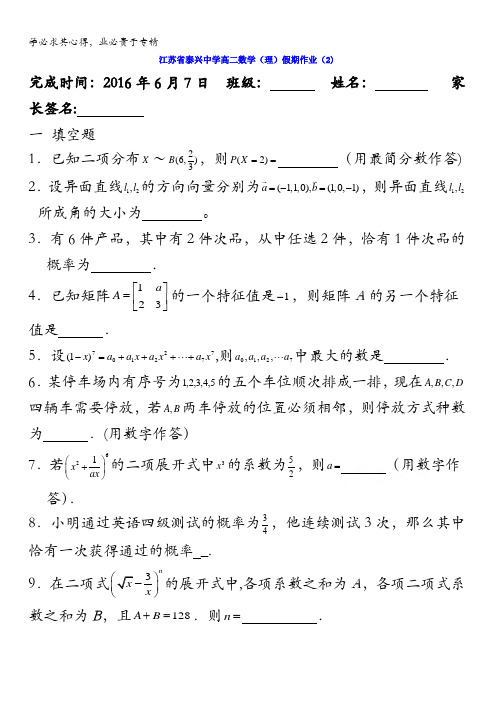 学必求其心得，业必贵于专精
江苏省泰兴中学高二数学（理）假期作业（2)
完成时间：2016年6月7日 班级： 姓名： 家
长签名:
一 填空题
1．已知二项分布X～B(6,2/3)，则P(X=2)= （用最简分数作答)
2．设异面直线l₁,l₂的方向向量分别为a⃗=(−1,1,0),b⃗=(1,0,−1)，则异面直线l₁,l₂
所成角的大小为 。
3．有6件产品，其中有2件次品，从中任选2件，恰有1件次品的
概率为 ．
4．已知矩阵A=[1 a; 2 3]的一个特征值是−1，则矩阵A的另一个特征
值是 ．
5．设(1−x)⁷=a₀+a₁x+a₂x²+⋯+a₇x⁷,则a₀,a₁,a₂⋯a₇中最大的数是 ．
6．某停车场内有序号为1,2,3,4,5的五个车位顺次排成一排，现在A,B,C,D
四辆车需要停放，若A,B两车停放的位置必须相邻，则停放方式种数
为 ．(用数字作答）
7．若(x²+1/(ax))⁶的二项展开式中x³的系数为5/2，则a= （用数字作
答)．
8．小明通过英语四级测试的概率为3/4，他连续测试3次，那么其中
恰有一次获得通过的概率 _．
9．在二项式(√x−3/x)ⁿ的展开式中,各项系数之和为A，各项二项式系
数之和为B，且A+B=128．则n= ．